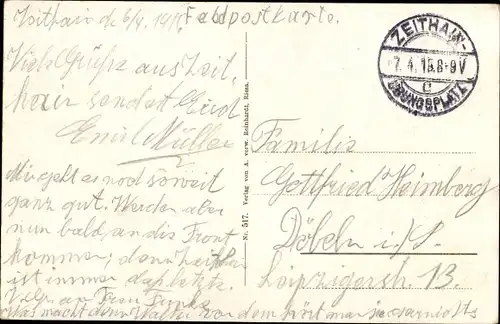 Zeithain d. 6/4. 1915.
Feldpostkarte.
Viele Grüße aus Zeit-
hain sendet Euch
Emil Müller
Mir geht es noch soweit
ganz gut. Werden aber
nun bald an die Front
kommen; denn Zeithain
ist immer das letzte.
an Frau
Was macht denn Walter von dem hört man ja gar nichts
Nr. 517. Verlag von A. verw. Reinhardt, Riesa.
ZEITHAIN-
7.4.15.8-9V
c
ÜBUNGSPLATZ
Familie
Gottfried Heimberg
Döbeln i./S.
Leipzigerstr. 13.